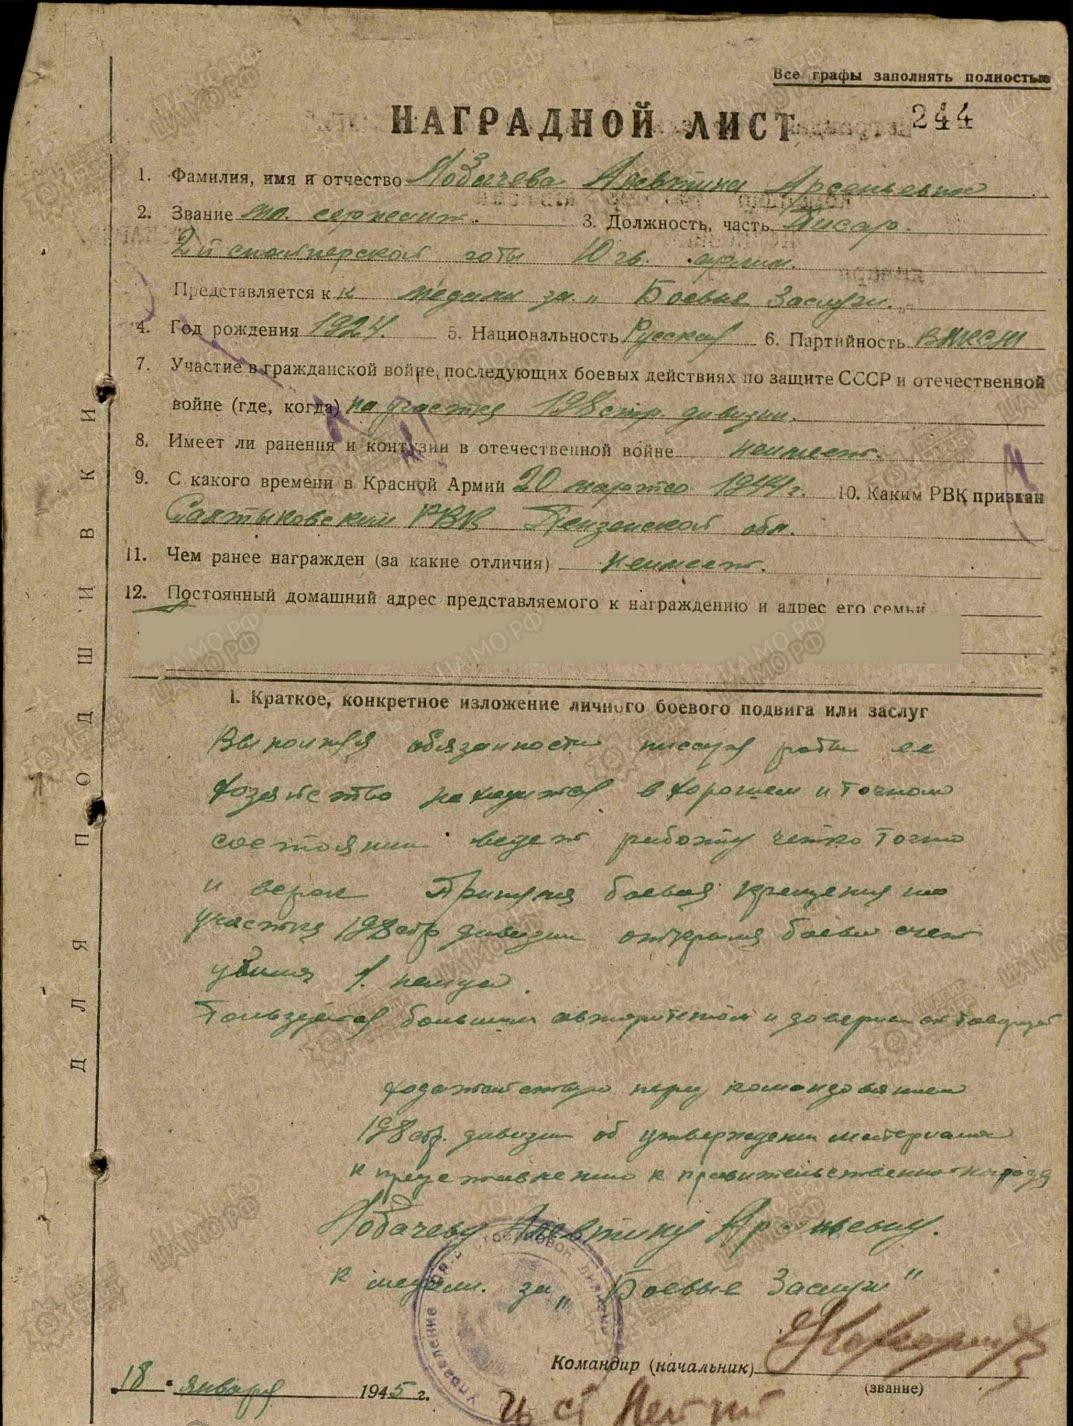 Все графы заполнять полностью
НАГРАДНОЙ ЛИСТ 244
1. Фамилия, имя и отчество Лобачева Алевтина Арсеньевна
2. Звание мл. сержант. 3. Должность, часть Писарь.
2й снайперской роты 10 гв. армии.
Представляется к к медали за „Боевые Заслуги„
4. Год рождения 1924. 5. Национальность Русская 6. Партийность ВЛКСМ
7. Участие в гражданской войне, последующих боевых действиях по защите СССР и отечественной
войне (где, когда) на участке 198 стр. дивизии.
8. Имеет ли ранения и контузии в отечественной войне неимеет.
9. С какого времени в Красной Армии 20 марта 1944 г. 10. Каким РВК призван
Салтыковским РВК Пензенской обл.
11. Чем ранее награжден (за какие отличия) неимеет.
12. Постоянный домашний адрес представляемого к награждению и адрес его семьи
I. Краткое, конкретное изложение личного боевого подвига или заслуг
Выполняя обязанности писаря роты ее
хозяйство находится в хорошем и точном
состоянии ведет работу четко точно
и верно Приняля боевая крещения на
участке 198 стр дивизии открыля боевы счет
убиля 1. немца.
Пользуется большим авторитетом и доверием от товарищей
Ходатайствую перед командованием
198 стр. дивизии об утверждении материала
к представлению к правительственной награде
Лобачеву Алевтину Арсеньевну.
к медали за „Боевые Заслуги"
Командир (начальник)
(звание)
18 января 1945 г.
ст Лейт
Управление стрелковой дивизии
ДЛЯ ПОДШИВКИ
ЦАМО РФ